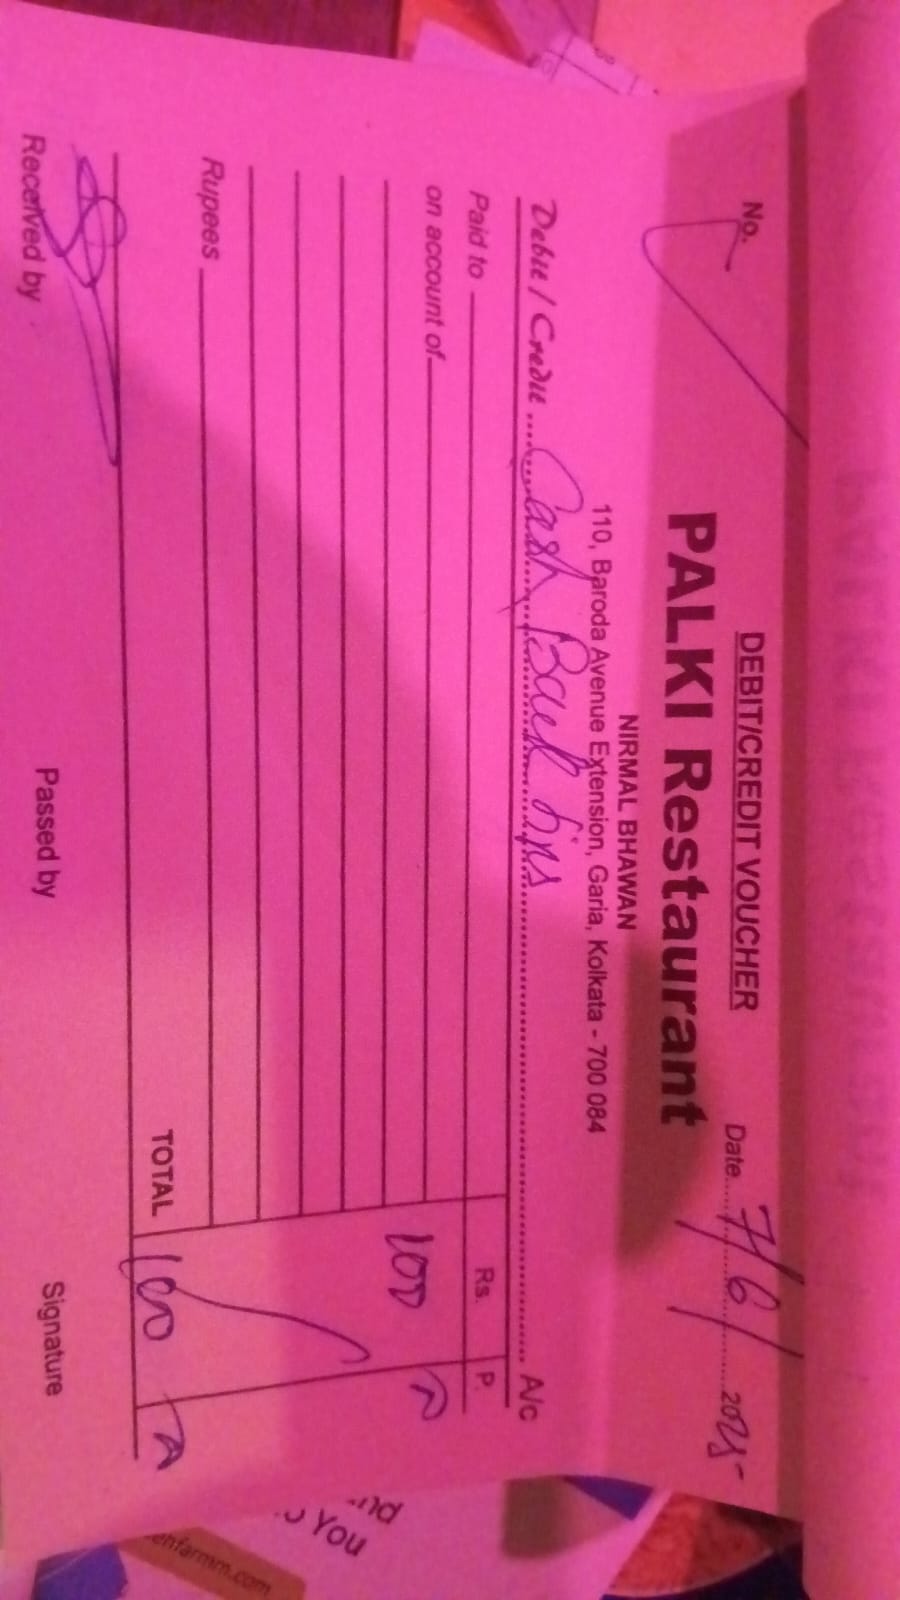 DEBIT/CREDIT VOUCHER
No.
Date 7/6/2025
PALKI Restaurant
NIRMAL BHAWAN
110, Baroda Avenue Extension, Garia, Kolkata - 700 084
Debit / Credit Cash Back A/c
Paid to Rs. P.
on account of 100
Rupees
TOTAL 100
Received by Passed by Signature
You